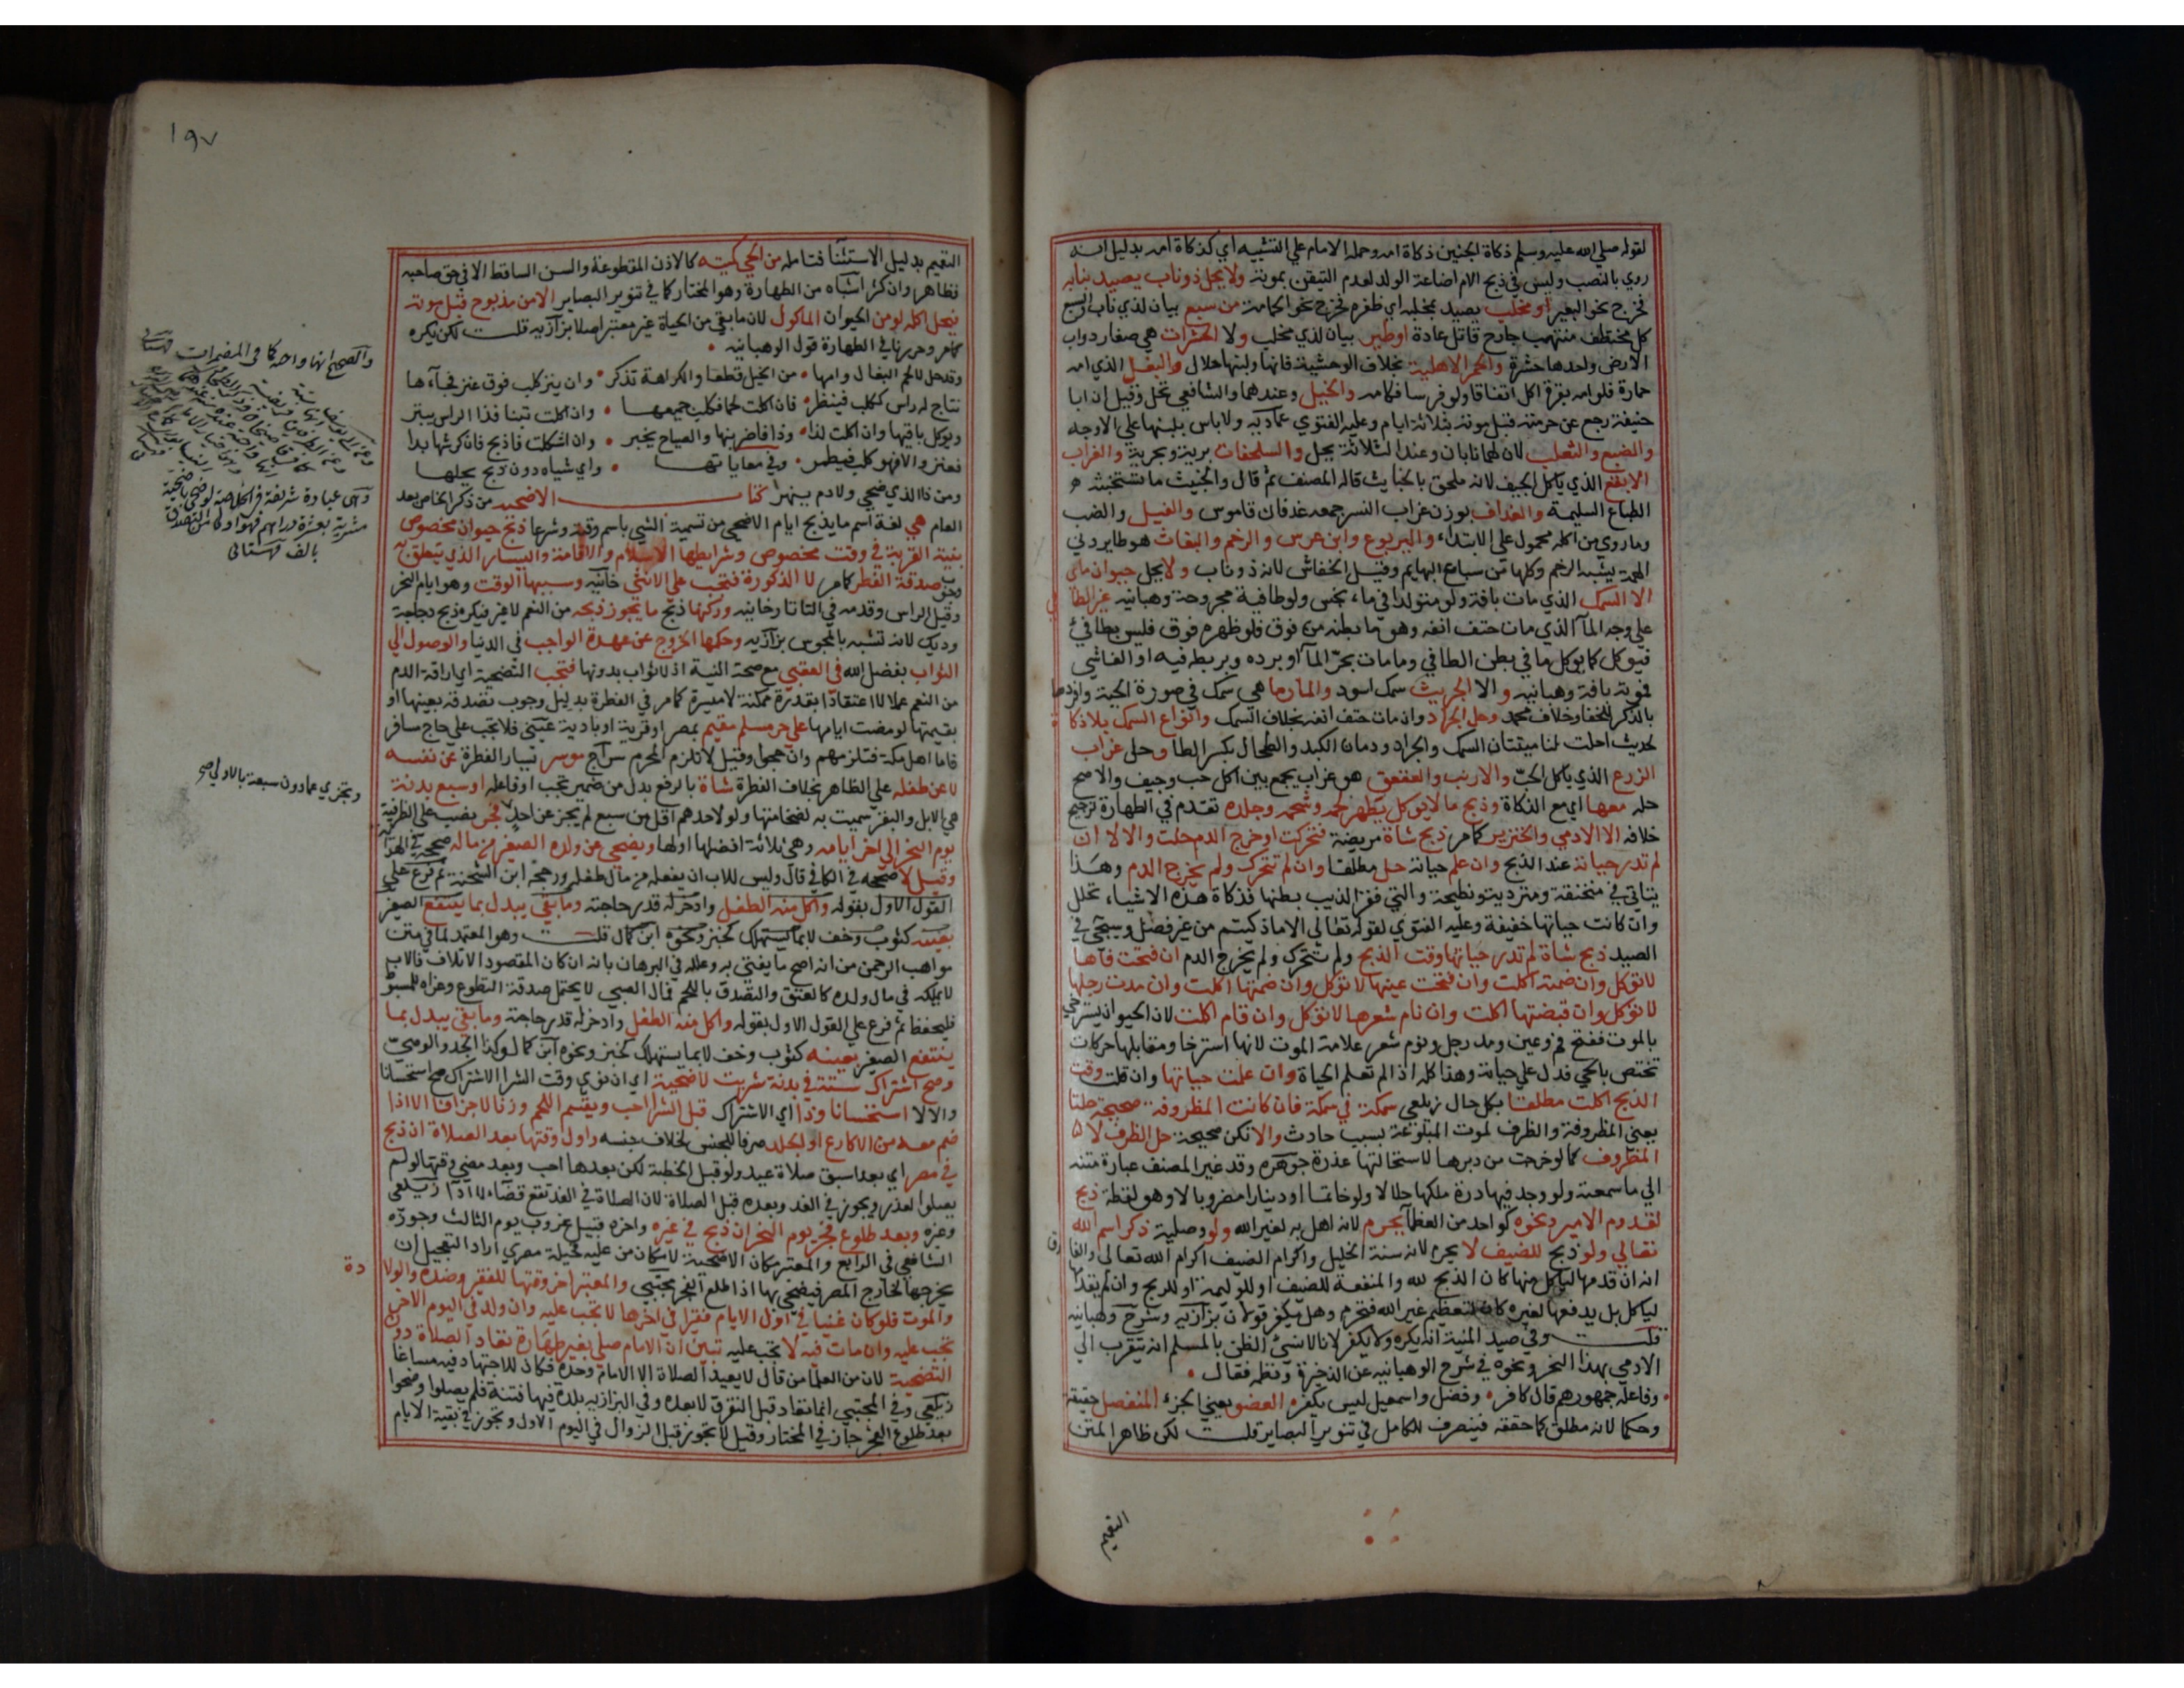 لقوله صلي الله عليه وسلم ذكاة الجنين ذكاة امه وحمله الامام علي التشبيه اي كذكاة امه بدليل انه
روي بالنصب وليس في ذبح الام اضاعة الولد لعدم التيقن بموته ولا يحل ذو ناب يصيد بنابه
فخرج نحو البعير او مخلب يصيد بمخلبه اي ظفره فخرج نحو الحمامة من سبع بيان لذي ناب السبع
كل مختطف منتهب جارح قاتل عادة او طير بيان لذي مخلب ولا الحشرات هي صغار دواب
الارض واحدها حشرة والحمر الاهلية بخلاف الوحشية فانها ولبنها حلال والبغل الذي امه
حمارة فلو امه بقرة اكل اتفاقا ولو فرسا فكامه والخيل وعندهما والشافعي تحل وقيل ان ابا
حنيفة رجع عن حرمته قبل موته بثلاثة ايام وعليه الفتوي عماديه ولا باس بلبنها علي الاوجه
والضبع والثعلب لان لهما نابان وعند الثلاثة يحل والسلحفات برية وبحرية والغراب
الابقع الذي ياكل الجيف لانه ملحق بالخبايث قاله المصنف ثم قال والخبيث ما تستخبثه
الطباع السليمة والغداف بوزن غراب النسر جمعه غدفان قاموس والفيل والضب
وما روي من اكله محمول علي الابتداء واليربوع وابن عرس والرخم والبغاث هو طاير دني
الهمة يشبه الرخم وكلها من سباع البهايم وقيل الخفاش لانه ذو ناب ولا يحل حيوان مائي
الا السمك الذي مات بافة ولو متولدا في ماء نجس ولو طافية مجروحة وهبانيه غير الطافي
علي وجه الماء الذي مات حتف انفه وهو ما بطنه من فوق فلو ظهره فوق فليس بطافئ
فيوكل كما يوكل ما في بطن الطافي وما مات بحر الماء او برده وبربطه فيه او القاشي
فموته بافة وهبانيه والا الجريث سمك اسود والمارماهي سمك في صورة الحية وافردهما
بالذكر للخفا وخلاف محمد وحل الجراد وان مات حتف انفه بخلاف السمك وانواع السمك بلا ذكاة
لحديث احلت لنا ميتتان السمك والجراد ودمان الكبد والطحال بكسر الطا وحل غراب
الزرع الذي ياكل الحب والارنب والعقعق هو غراب يجمع بين اكل حب وجيف والاصح
حله معها اي مع الذكاة وذبح ما لا يوكل يطهر لحمه وشحمه وجلده تقدم في الطهارة ترجيح
خلافه الا الادمي والخنزير كما مر ذبح شاة مريضة فتحركت او خرج الدم حلت والا لا ان
لم تدر حياته عند الذبح وان علم حياته حل مطلقا وان لم تتحرك ولم يخرج الدم وهذا
يتاتي في منخنقة ومتردية ونطيحة والتي فقر الذيب بطنها فذكاة هذه الاشياء تحلل
وان كانت حياتها خفيفة وعليه الفتوي لقوله تعالي الا ما ذكيتم من غير فصل وسيجي في
الصيد ذبح شاة لم تدر حياتها وقت الذبح ولم تتحرك ولم يخرج الدم ان فتحت فاها
لا توكل وان ضمته اكلت وان فتحت عينها لا توكل وان ضمتها اكلت وان مدت رجلها
لا توكل وان قبضتها اكلت وان نام شعرها لا توكل وان قام اكلت لان الحيوان يسترخي
بالموت ففتح فم وعين ومد رجل ونوم شعر علامة الموت لانها استرخا ومقابلها حركات
تختص بالحي فدل علي حياته وهذا كله اذا لم تعلم الحياة وان علمت حياتها وان قلت وقت
الذبح اكلت مطلقا بكل حال زيلعي سمكة في سمكة فان كانت المظروفة صحيحة حلتا
يعني المظروفة والظرف لموت المبلوعة بسبب حادث والا تكن صحيحة حل الظرف لا
المظروف كما لو خرجت من دبرها لاستحالتها عذرة جوهره وقد غير المصنف عبارة متنه
الي ما سمعته ولو وجد فيها درة ملكها حلالا ولو خاتما او دينارا مضروبا لا وهو لقطة ذبح
لقدوم الامير ونحوه كواحد من العظما يحرم لانه اهل به لغير الله ولو وصلية ذكر اسم الله
تعالي ولو ذبح للضيف لا يحرم لانه سنة الخليل واكرام الضيف اكرام الله تعالي والفارق
انه ان قدمها لياكل منها كان الذبح لله والمنفعة للضيف او للوليمة او للربح وان لم يقدمها
لياكل بل يدفعها لغيره كان لتعظيم غير الله فتحرم وهل يكفر قولان بزازيه وشرح وهبانيه
قلت وفي صيد المنية انه يكره ولا يكفر لانا لا نسئ الظن بالمسلم انه يتقرب الي
الادمي بهذا النحر ونحوه في شرح الوهبانيه عن الذخيرة ونظمه فقال
وفاعله جمهورهم قال كافر وفضل واسمعيل ليس يكفر العضو يعني الجزء المنفصل حقيقة
وحكما لانه مطلق كما حققه فينصرف للكامل في تنوير البصاير قلت لكن ظاهر المتن
التعميم
١٩٧
التعميم بدليل الاستثنا فتامله من الحي كميته كالاذن المقطوعة والسن الساقط الا في حق صاحبه
فطاهر وان كثر اشباه من الطهارة وهو المختار كما في تنوير البصاير الا من مذبوح قبل موته
فيحل اكله لو من الحيوان الماكول لان ما بقي من الحياة غير معتبر اصلا بزازيه قلت لكن يكره
كما مر وحررنا في الطهارة قول الوهبانيه
وقد حل لحم البغال وامها من الخيل قطعا والكراهة تذكر وان ينز كلب فوق عنز فجاءها
نتاج له راس ككلب فينظر فان اكلت لحما فكلب جميعها وان اكلت تبنا فذا الراس يبتر
ويوكل باقيها وان اكلت لذا وذا فاضربنها والصياح يخبر وان اشكلت فاذبح فان كرشها بدا
فعنز والا فهو كلب فيطمر وفي معاياتها واي شياه دون ذبح يحلها
ومن ذا الذي ضحي ولا دم ينهر كتاب الاضحيه من ذكر الخاص بعد
العام هي لغة اسم ما يذبح ايام الاضحي من تسمية الشي باسم وقته وشرعا ذبح حيوان مخصوص
بنية القربة في وقت مخصوص وشرايطها الاسلام والاقامة واليسار الذي يتعلق به
وجوب صدقة الفطر كما مر لا الذكورة فتجب علي الانثي خانيه وسببها الوقت وهو ايام النحر
وقيل الراس وقدمه في التاتارخانيه وركنها ذبح ما يجوز ذبحه من النعم لا غير فيكره ذبح دجاجة
وديك لانه تشبه بالمجوس بزازيه وحكمها الخروج عن عهدة الواجب في الدنيا والوصول الي
الثواب بفضل الله في العقبي مع صحة النية اذ لا ثواب بدونها فتجب التضحية اي اراقة الدم
من النعم عملا لا اعتقادا بقدرة ممكنة لا ميسرة كما مر في الفطرة بدليل وجوب تصدقه بعينها او
بقيمتها لو مضت ايامها علي حر مسلم مقيم بمصر او قرية او بادية عيني فلا تجب علي حاج مسافر
فاما اهل مكة فتلزمهم وان حجوا وقيل لا تلزم المحرم سراج موسر يسار الفطرة عن نفسه
لا عن طفله علي الظاهر بخلاف الفطرة شاة بالرفع بدل من ضمير تجب او فاعله او سبع بدنة
هي الابل والبقر سميت به لضخامتها ولو لاحدهم اقل من سبع لم يجز عن احد فجر نصب علي الظرفية
يوم النحر الي اخر ايامه وهي ثلاثة افضلها اولها ويضحي عن ولده الصغير من ماله صححه في الهداية
وقيل لا صححه في الكافي قال وليس للاب ان يفعله من مال طفله ورجحه ابن الشحنة ثم فرع علي
القول الاول بقوله واكل منه الطفل وادخر له قدر حاجته وما بقي يبدل بما ينتفع الصغير
بعينه كثوب وخف لا بما يستهلك كخبز ونحوه ابن كمال قلت وهو المعتمد لما في متن
مواهب الرحمن من انه اصح ما يفتي به وعلله في البرهان بانه ان كان المقصود الاتلاف فالاب
لا يملكه في مال ولده كالعتق والتصدق باللحم فمال الصبي لا يحتمل صدقة التطوع وعزاه للمبسوط
فليحفظ ثم فرع علي القول الاول بقوله واكل منه الطفل وادخر له قدر حاجته وما بقي يبدل بما
ينتفع الصغير بعينه كثوب وخف لا بما يستهلك كخبز ونحوه ابن كمال وكذا الجد والوصي
وصح اشتراك ستة في بدنة شريت لاضحية اي ان نوي وقت الشرا الاشتراك صح استحسانا
والا لا استحسانا وذا اي الاشتراك قبل الشرا احب ويقسم اللحم وزنا لا جزافا الا اذا
ضم معه من الاكارع او الجلد صرفا للجنس لخلاف جنسه واول وقتها بعد الصلاة ان ذبح
في مصر اي بعد اسبق صلاة عيد ولو قبل الخطبة لكن بعدها احب وبعد مضي وقتها لو لم
يصلوا لعذر ويجوز في الغد وبعده قبل الصلاة لان الصلاة في الغد تقع قضاء لا اداء زيلعي
وغيره وبعد طلوع فجر يوم النحر ان ذبح في غيره واخره قبيل غروب يوم الثالث وجوزه
الشافعي في الرابع والمعتبر مكان الاضحية لا مكان من عليه فحيلة مصري اراد التعجيل ان
يخرجها لخارج المصر فيضحي بها اذا طلع الفجر مجتبي والمعتبر اخر وقتها للفقير وضده والولادة
والموت فلو كان غنيا في اول الايام فقيرا في اخرها لا تجب عليه وان ولد في اليوم الاخر
تجب عليه وان مات فيه لا تجب عليه تبين ان الامام صلي بغير طهارة تعاد الصلاة دون
التضحية لان من العلما من قال لا يعيد الصلاة الا الامام وحده فكان للاجتهاد فيه مساغا
زيلعي وفي المجتبي انما تعاد قبل التفرق لا بعده وفي البزازيه بلدة فيها فتنة فلم يصلوا وضحوا
بعد طلوع الفجر جاز في المختار وقيل لا تجوز قبل الزوال في اليوم الاول وتجوز في بقية الايام
والصحيح انها واجبة كما في المضمرات قهستاني
وتجزي عما دون سبعة بالاولي صح